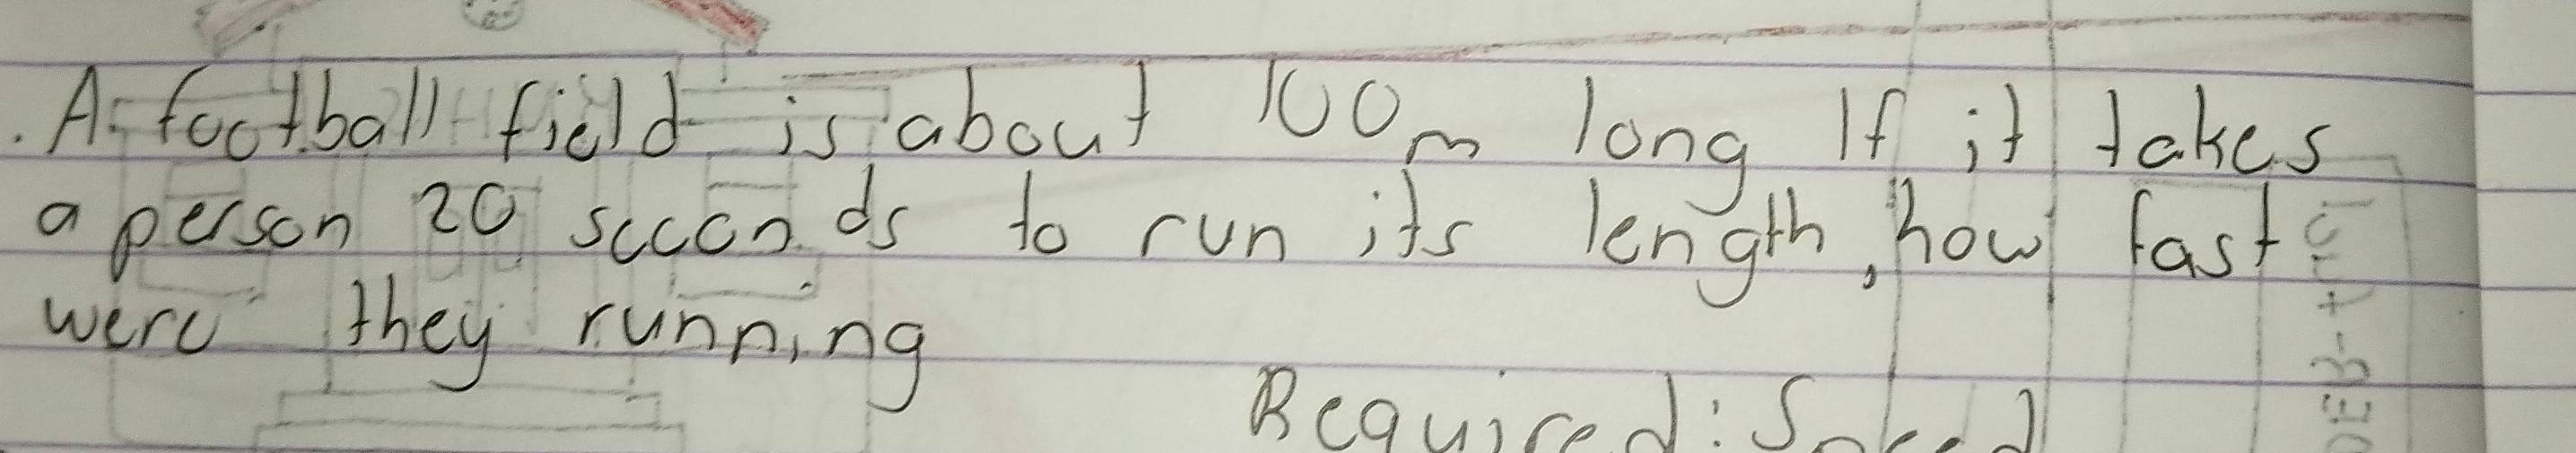 . A football field is about 100m long If it takes
a person 20 seconds to run its length, how fast
were they running
Required: Speed